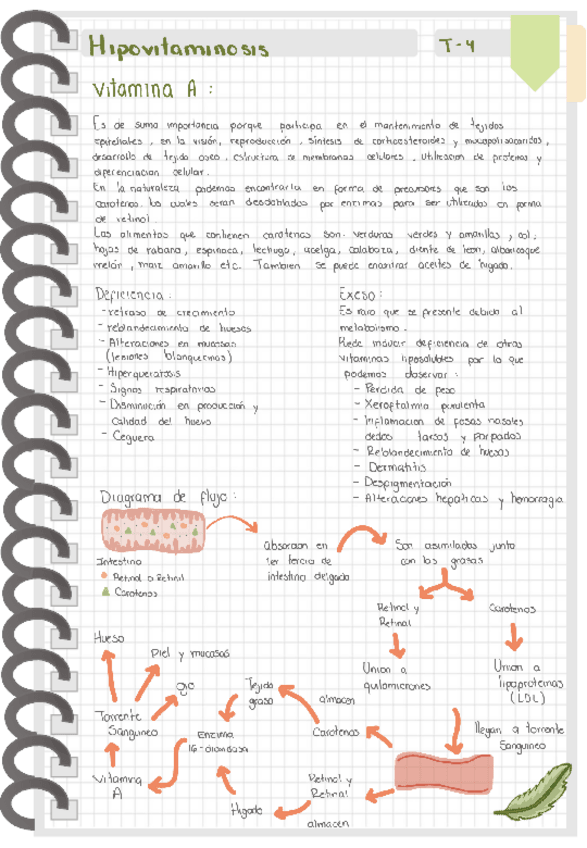 Hipovitaminosis
T-4
Vitamina A :
Es de suma importancia porque participa en el mantenimiento de tejidos
epiteliales , en la visión, reproducción , síntesis de corticoesteroides y mucopolisacaridos ,
desarrollo de tejido oseo , estructura de membranas celulares , utilizacion de proteinas y
diferenciacion celular .
En la naturaleza podemos encontrarla en forma de precursores que son los
carotenos . los cuales seran desdoblados por enzimas para ser utilizados en forma
de retinol .
Los alimentos que contienen carotenos son: verduras verdes y amarillas , col ;
hojas de rabano , espinaca , lechuga , acelga , calabaza , diente de leon, albaricoque
melón , maiz amarillo etc. Tambien se puede encontrar aceites de higado .
Deficiencia :
- retraso de crecimiento
- reblandecimiento de huesos
- Alteraciones en mucosas
(lesiones blanquecinas)
- Hiperqueratosis
- Signos respiratorios
- Disminución en producción y
calidad del huevo
- Ceguera
Exeso :
Es raro que se presente debido al
metabolismo .
Puede inducir deficiencia de otras
vitaminas liposolubles por lo que
podemos observar :
- Perdida de peso
- Xeroftalmia purulenta
- Inflamacion de fosas nasales
dedos tarsos y parpados
- Reblandecimiento de huesos
- Dermatitis
- Despigmentación
- Alteraciones hepaticas y hemorragia
Diagrama de flujo :
Intestino
Retinol o Retinil
Carotenos
Absorcion en
1er tercio de
intestino delgado
Son asimilados junto
con las grasas
Retinol y
Retinal
Carotenos
Union a
quilomicrones
Union a
lipoproteinas
(LDL)
llegan a torrente
Sanguineo
Carotenos
almacen
Tejido
graso
Retinol y
Retinal
almacen
Higado
Enzima
16-dioxidasa
Vitamina
A
Torrente
Sanguineo
Hueso
Piel y mucosas
ojo